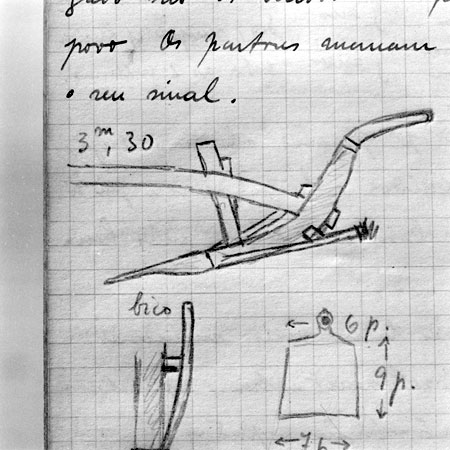 povo. Os pastores marcam
o seu sinal.
3ᵐ, 30
bico
6 p.
9 p.